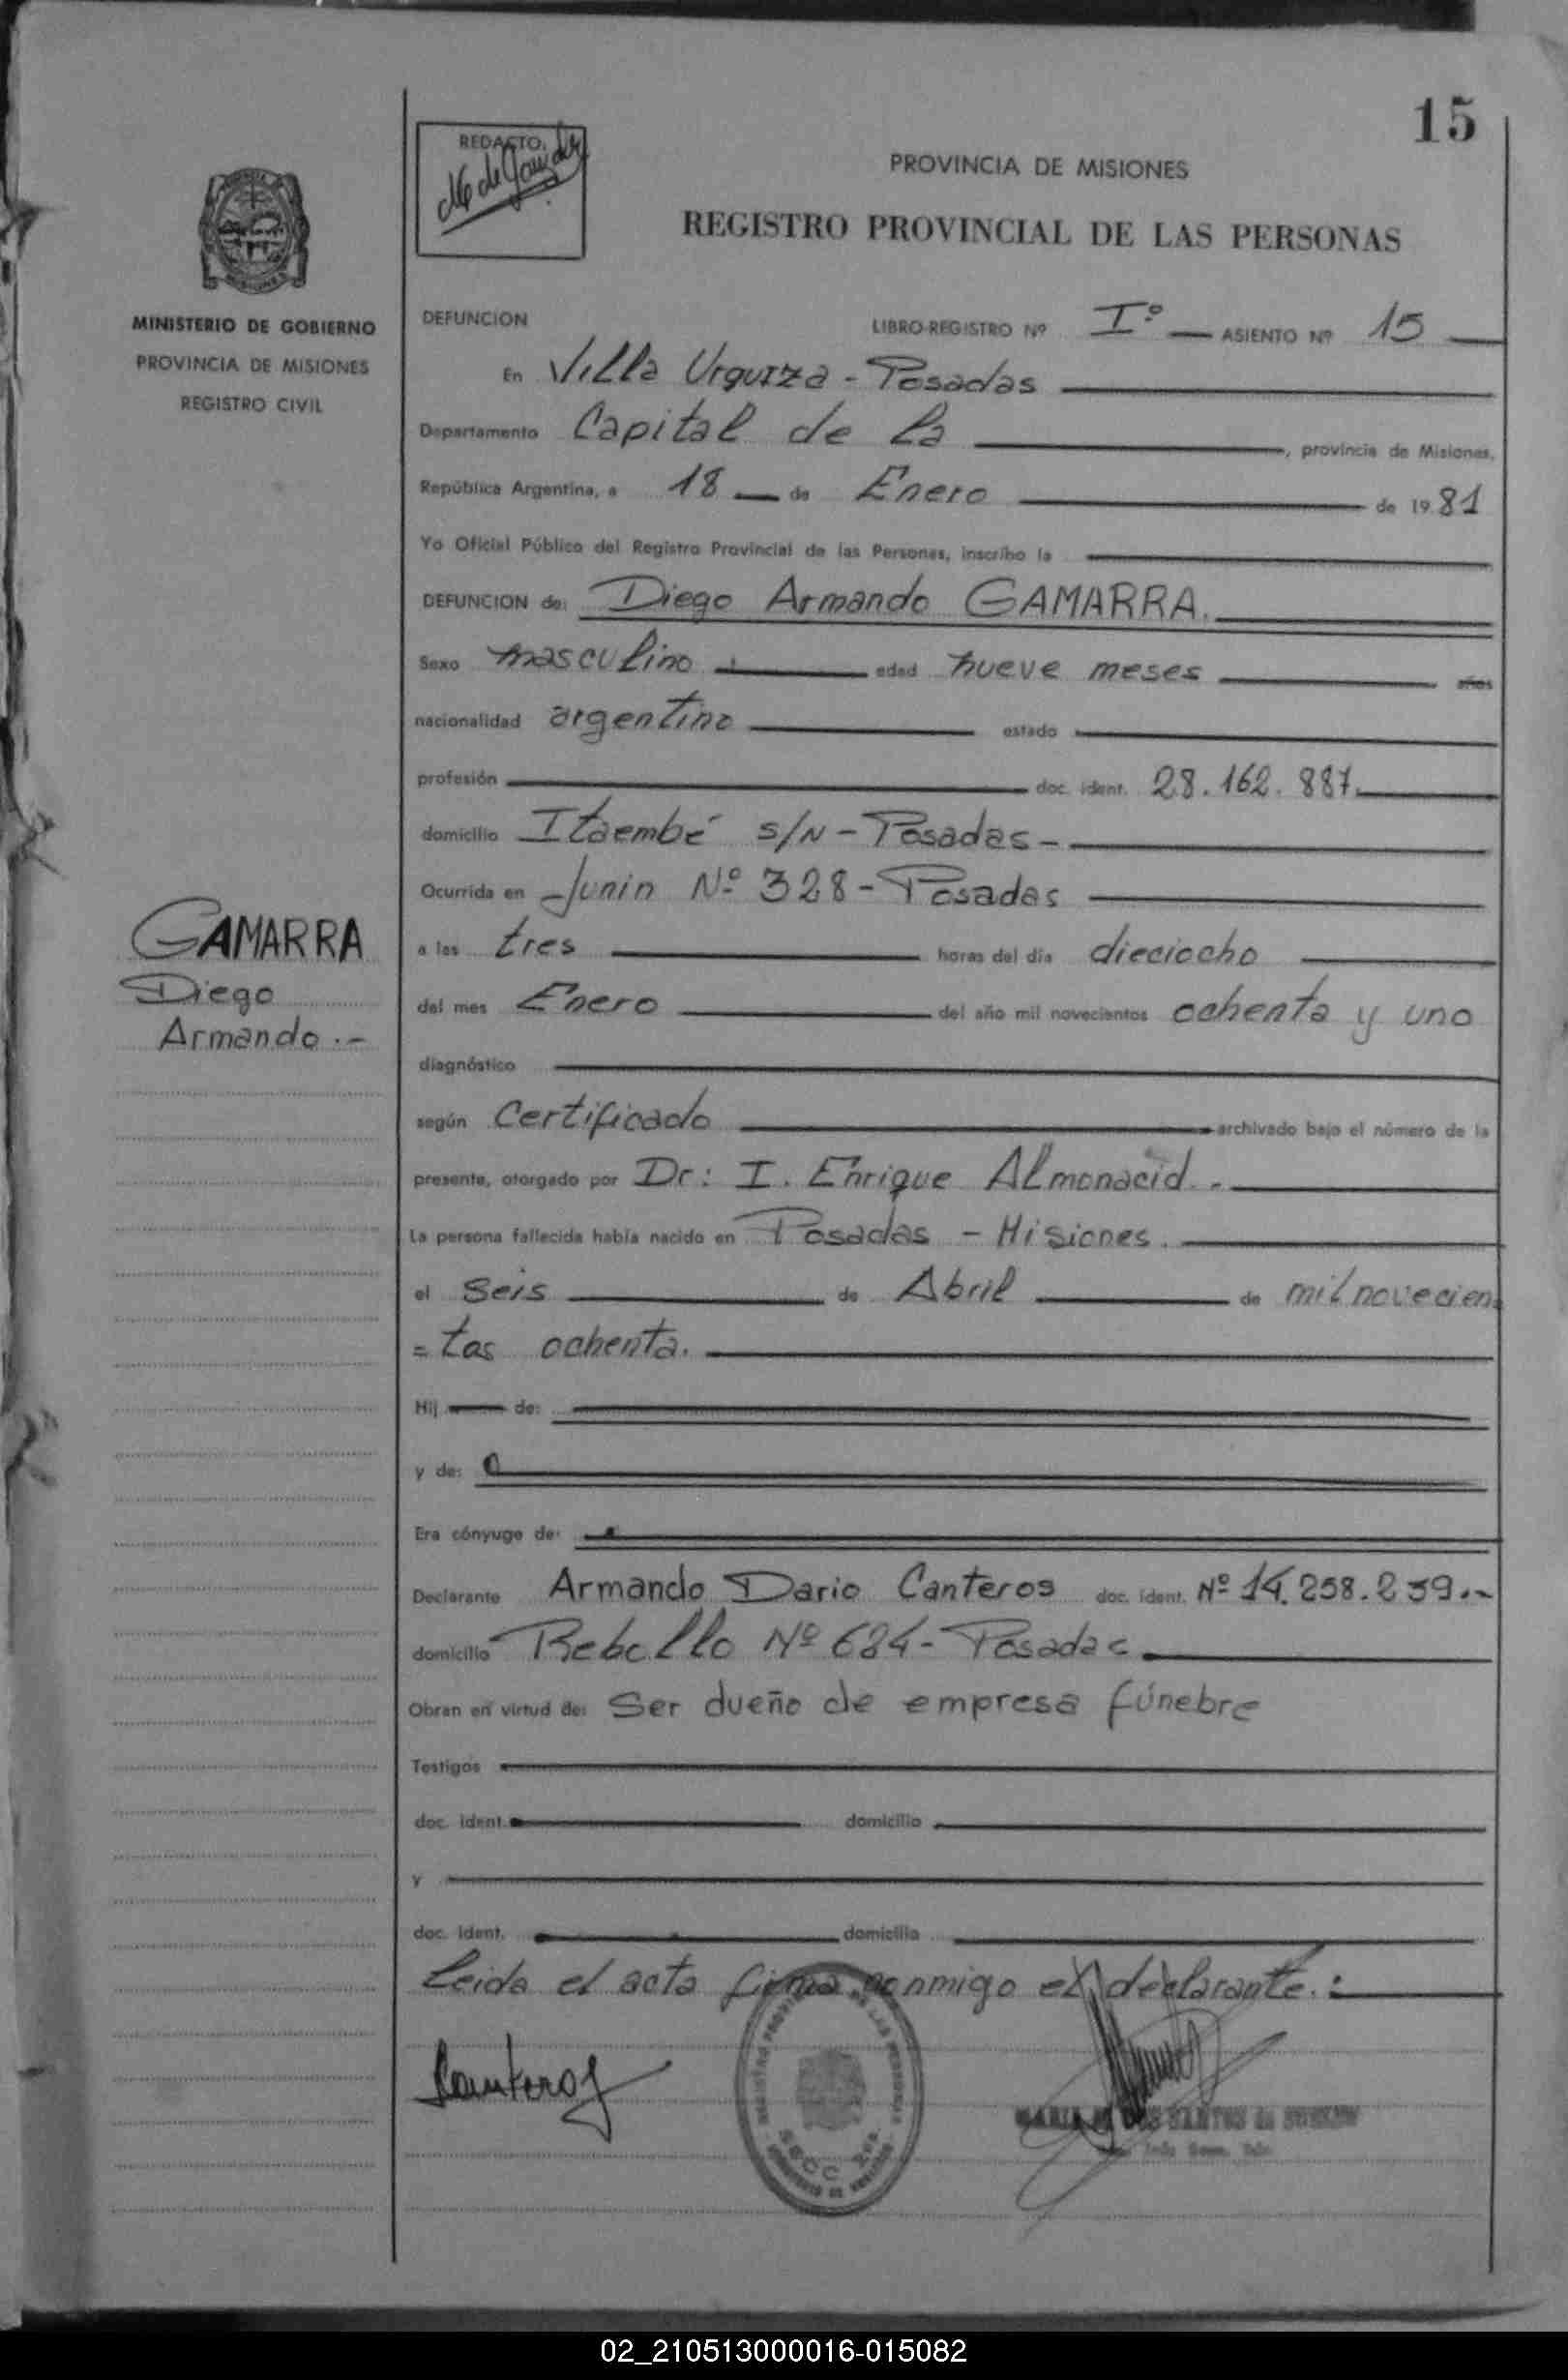 15
REDACTO.
PROVINCIA DE MISIONES
REGISTRO PROVINCIAL DE LAS PERSONAS
MINISTERIO DE GOBIERNO
PROVINCIA DE MISIONES
REGISTRO CIVIL
DEFUNCION LIBRO-REGISTRO Nº Iº — ASIENTO Nº 15
En Villa Urquiza - Posadas
Departamento Capital de la , provincia de Misiones,
República Argentina, a 18 de Enero de 1981
Yo Oficial Público del Registro Provincial de las Personas, inscribo la
DEFUNCION de: Diego Armando GAMARRA.
Sexo masculino edad nueve meses años
nacionalidad argentino estado
profesión doc. ident. 28.162.887.
domicilio Itaembé s/N - Posadas -
Ocurrida en Junin Nº 328 - Posadas
GAMARRA
Diego
Armando .-
a las tres horas del día dieciocho
del mes Enero del año mil novecientos ochenta y uno
diagnóstico
según Certificado archivado bajo el número de la
presente, otorgado por Dr: I. Enrique Almonacid.-
La persona fallecida había nacido en Posadas - Misiones.
el seis de Abril de mil novecien
= tos ochenta.
Hij de:
y de:
Era cónyuge de:
Declarante Armando Dario Canteros doc. ident. Nº 14.258.239.-
domicilio Rebollo Nº 684 - Posadas
Obran en virtud de: Ser dueño de empresa fúnebre
Testigos
doc. ident. domicilio
y
doc. ident. domicilio
Leida el acta firma conmigo el declarante.:
Canteros
SECC. 2da
MARIA DE LOS SANTOS de
02_210513000016-015082